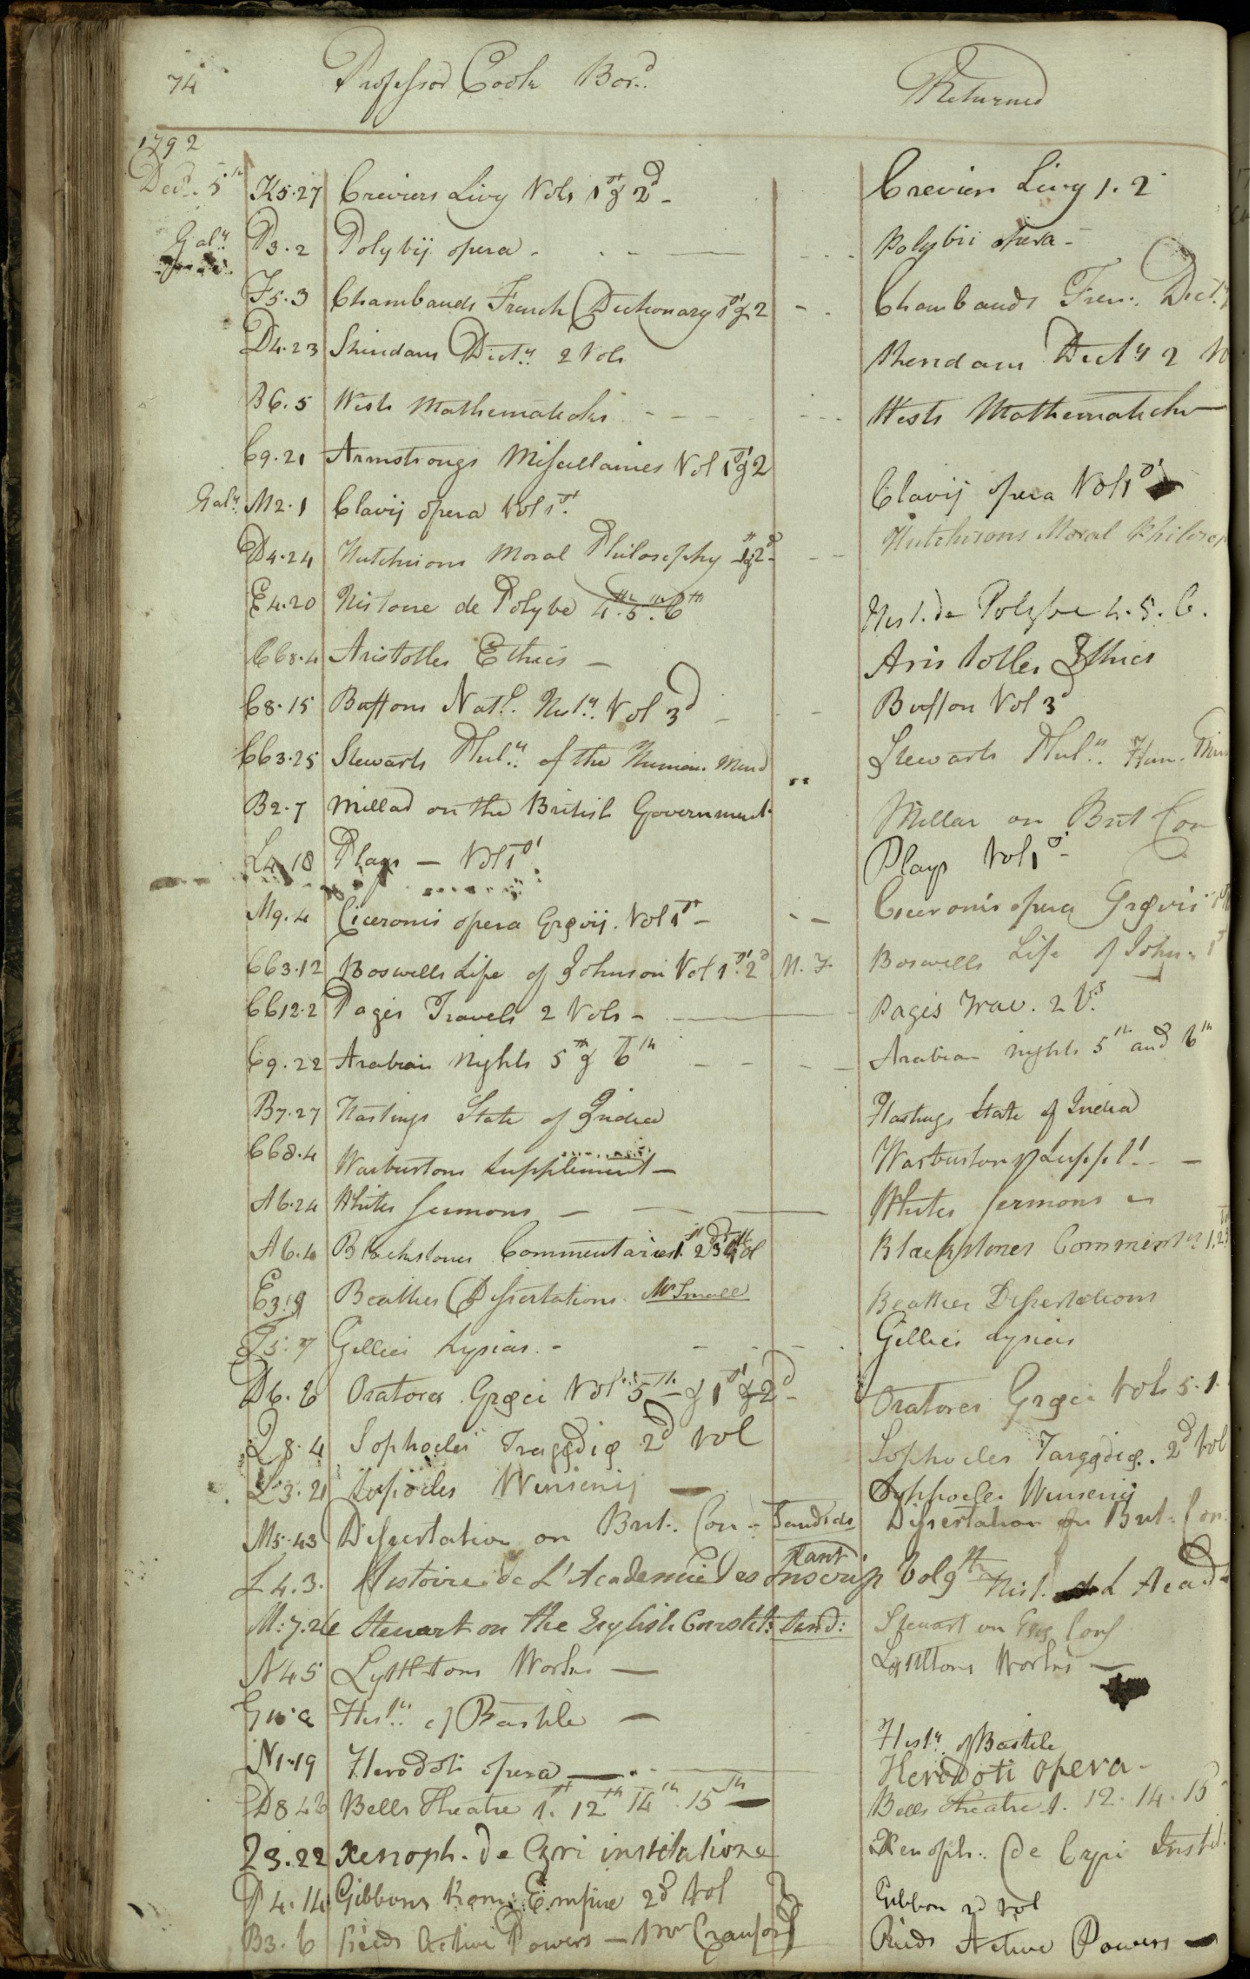 74 Professor Cook Bor.d Returned
1792
Decr. 5th K5.27 Creviers Livy Vols 1st & 2d - Crevier Livy 1. 2
Galy. P3.2 Polybij opera - Polybii opera -
F5.3 Chambauds French Dictionary 1st & 2 - Chambauds Fren. Dict.
D4.23 Sheridans Dicty. 2 Vols Sheridans Dicty 2
B6.5 Wests Mathematicks - - - Wests Mathematicks
C9.21 Armstrongs Miscellainies Vol 1st & 2
Galy. M2.1 Clavij opera Vol 1st. Clavij opera Vol 1st
D4.24 Hutchisons Moral Philosophy 1st & 2d - Hutchisons Moral Philosop
E4.20 Histoire de Polybe 4th. 5th. 6th Hist. de Polybe 4. 5. 6.
CC8.4 Aristotles Ethics - Aristotles Ethics
C8.15 Buffons Natl. Histy. Vol 3d - Buffon Vol 3d
CC3.25 Stewarts Phily. of the Human Mind Stewarts Phily. Hum. Min
B2.7 Millar on the British Government Millar on Brit Con
L4.18 Plays - Vol 1st Plays Vol 1st -
M9.4 Ciceronis opera Grævij. Vol 1st - Ciceronis opera Grævii
CC3.12 Boswells Life of Johnson Vol 1st. 2d M. F. Boswells Life of John. 1st
CC12.2 Pagés Travels 2 Vols - Pagés Trav. 2 Vs.
C9.22 Arabian Nights 5th & 6th - - Arabian nights 5th and 6th
B7.27 Hastings State of India Hastings State of India
CC8.4 Warburtons Supplement - Warburtons Supplt. -
A6.24 Whites Sermons - Whites Sermons
A6.4 Blackstones Commentaries 1st 2d 3d 4th Vol Blackstones Comment 1. 2
E3.9 Beatties Dissertations Mr Small Beatties Dissertations
7 Gillies Lysias. - Gillies Lysias
D6.6 Oratores Græci Vol 5th & 1st & 2d - Oratores Græci Vols 5. 1.
Q8.4 Sophocles Tragædiæ 2d Vol Sophocles Tragædiæ. 2d Vol
L3.21
M5.43 Dissertation on Brit. Con - Dissertation on Brit. Con.
L4.3. Histoire de L'Academie des Inscrip Vol 9th Hist. L Acad
M:7.26 Stewart on the English Constit: Stewart on Eng Cons
N4.5 Lyttltons Works - Lyttltons Works -
Histy. of Bastile - Histy. of Bastile
N1.19 Herodoti opera - Herodoti opera -
D8.43 Bells Theatre 1st. 12th 14th. 15th - Bells Theatre 1. 12. 14. 15
Q3.22 Xenoph. de Cyri institutione Xenoph. de Cyri Instit.
P4.14 Gibbons Rom: Empire 2d Vol Gibbon 2d Vol
B3.6 Reids Active Powers - Mr Crauford Reids Active Powers -